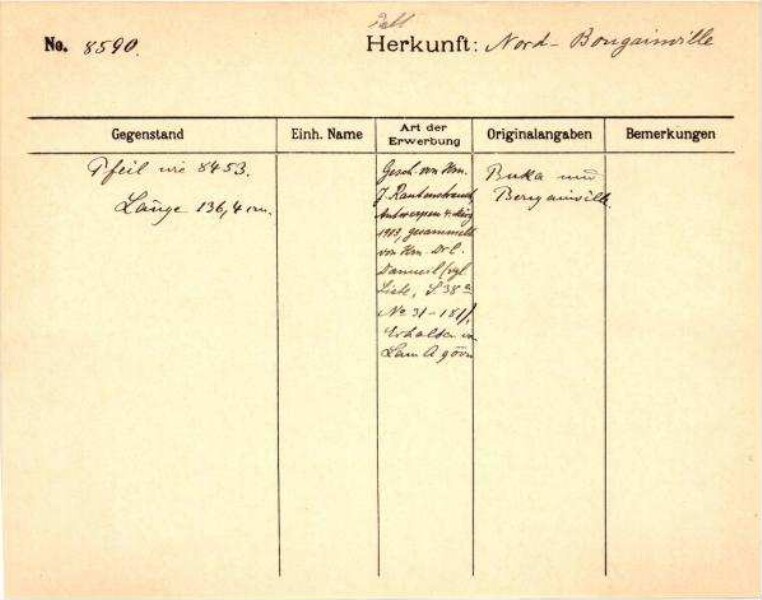 No. 8590. Herkunft: Nord-Bougainville
Gegenstand Einh. Name Art der Erwerbung Originalangaben Bemerkungen
Pfeil wie 8453.
Länge 136,4 cm.
Gesch. von Hrn.
J. Rautenstrauch,
Antwerpen 4. März
1913, gesammelt
von Hrn. Dr.
(vgl.
Liste, S. 38a
No 31-181),
Erhalten
Buka und
Bougainville.